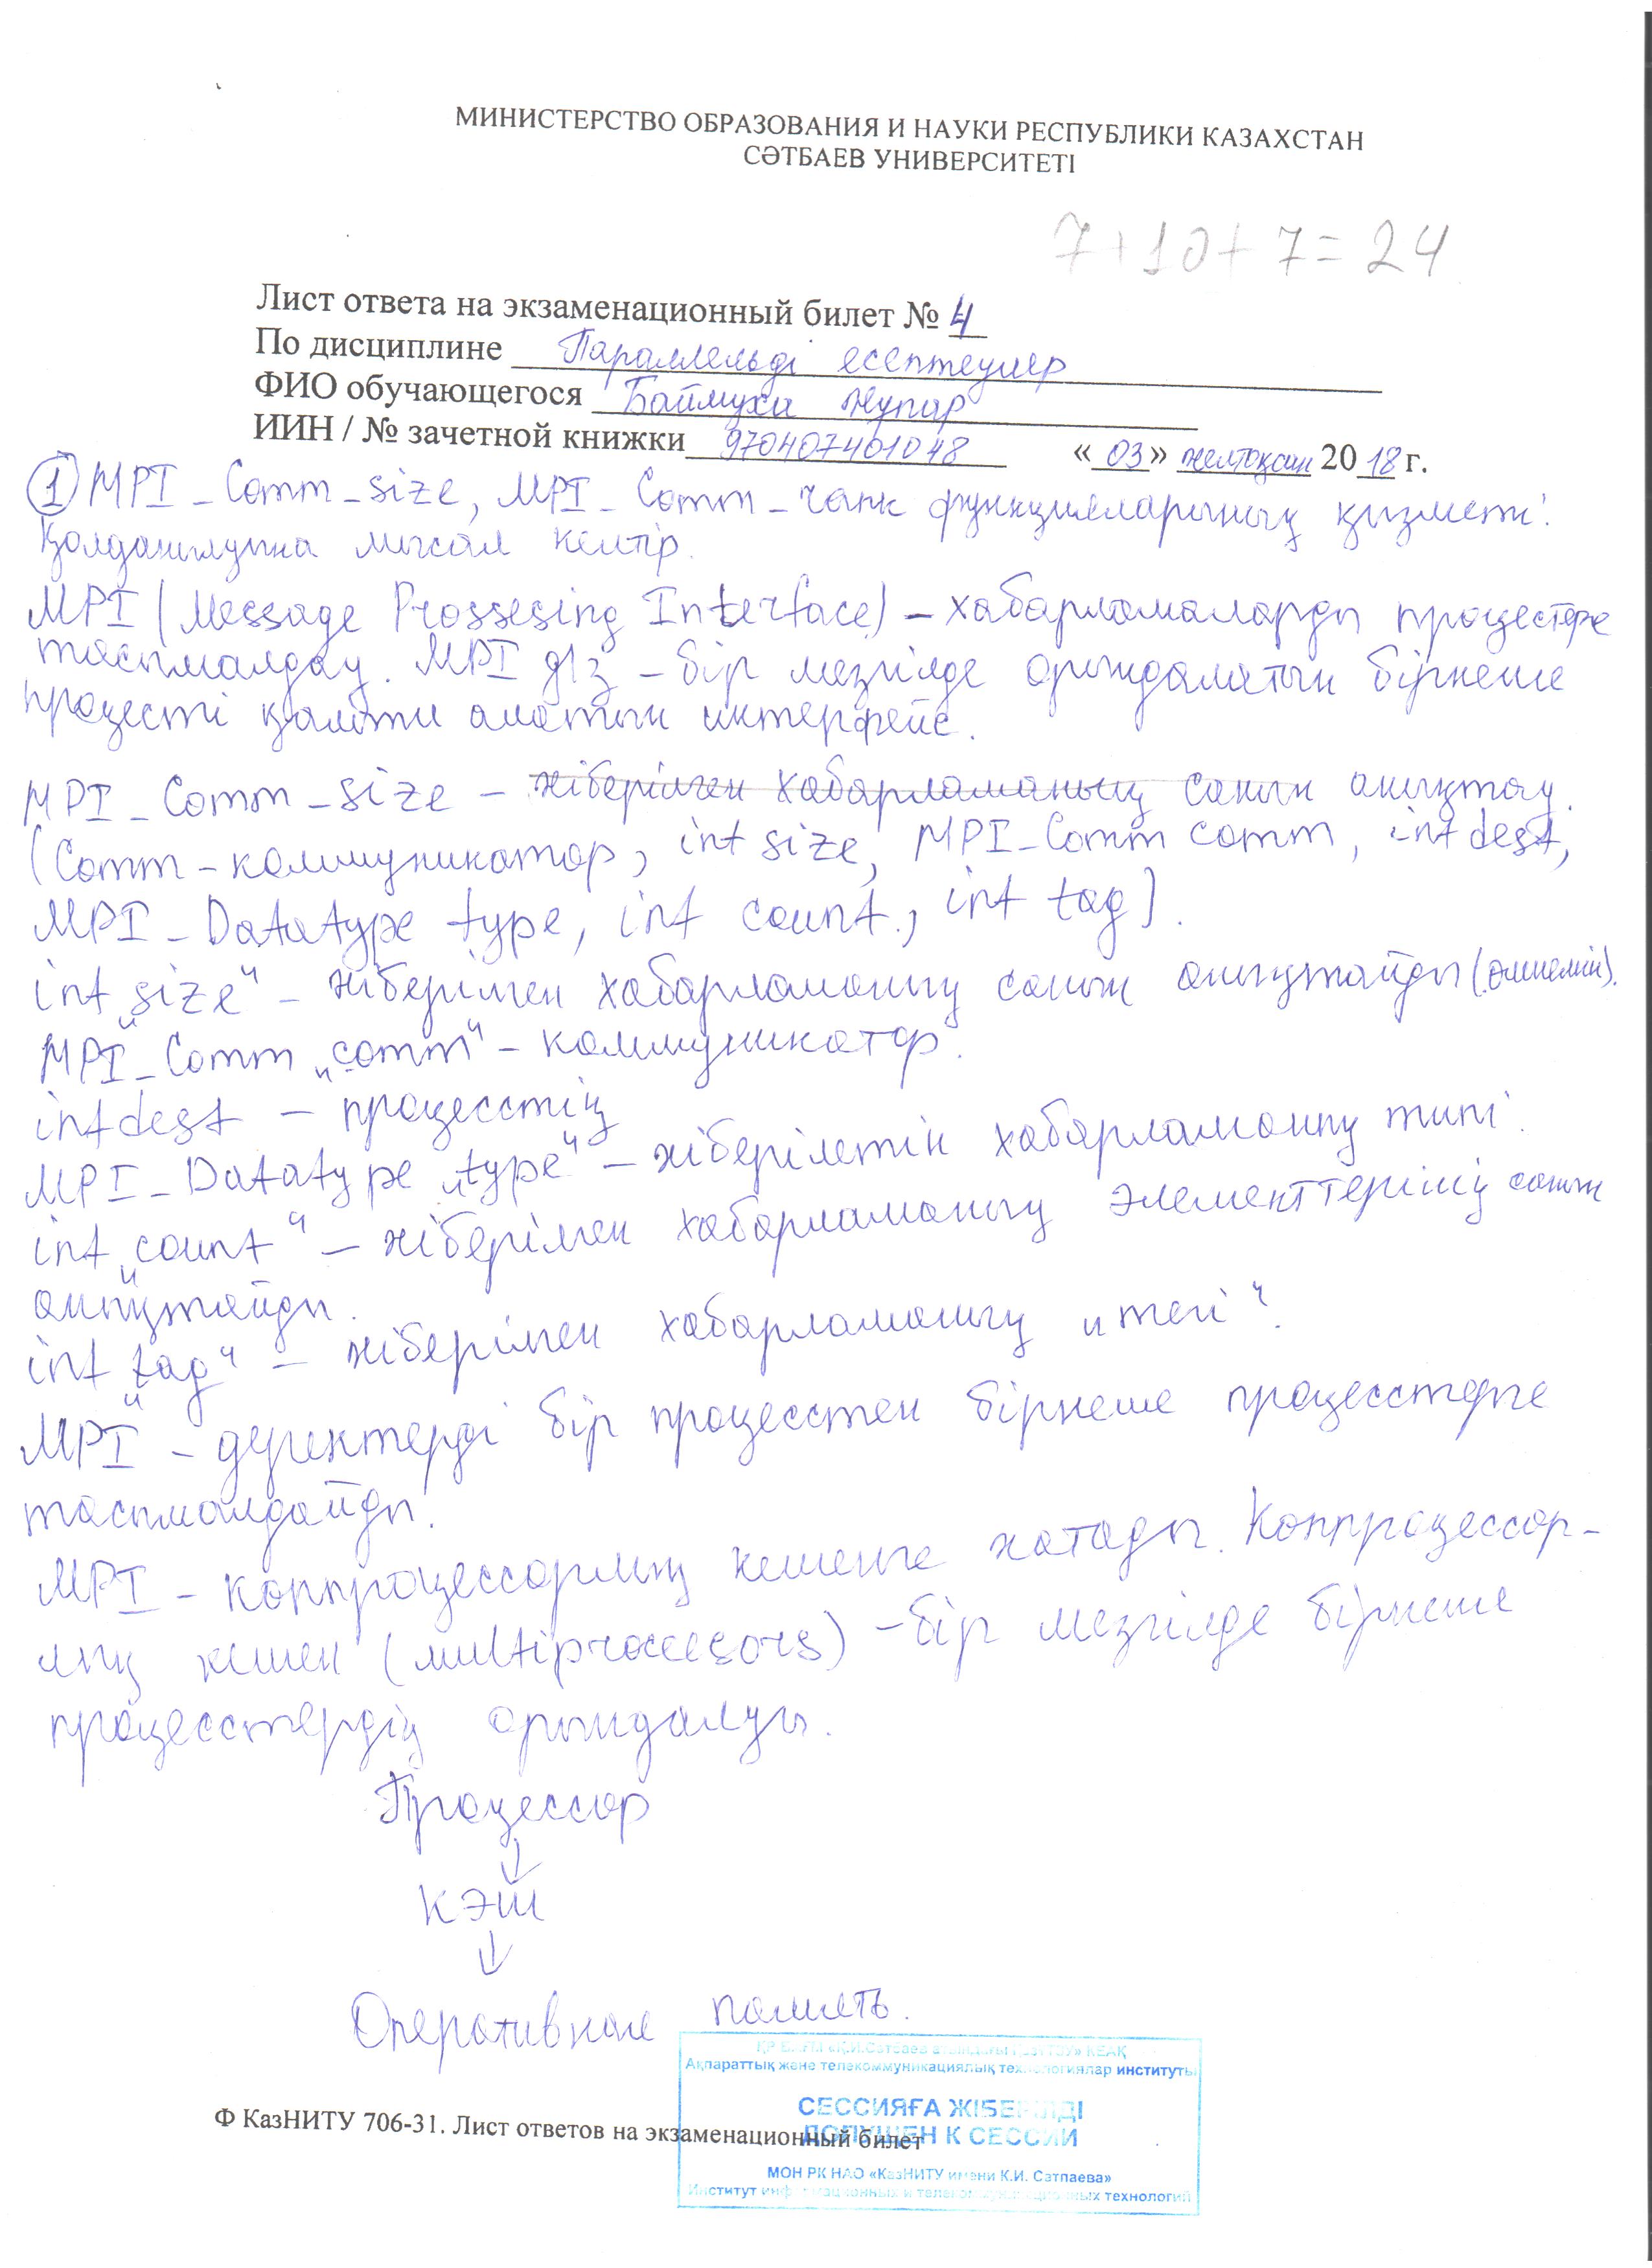 МИНИСТЕРСТВО ОБРАЗОВАНИЯ И НАУКИ РЕСПУБЛИКИ КАЗАХСТАН
СӘТБАЕВ УНИВЕРСИТЕТІ
7+10+7=24
Лист ответа на экзаменационный билет № 4
По дисциплине Параллельді есептеулер
ФИО обучающегося Баймуха Жупар
ИИН / № зачетной книжки 970407401048 «03» желтоқсан 2018 г.
① MPI_Comm_size, MPI_Comm_rank функцияларының қызметі.
Қолданылуына мысал келтір.
MPI (Message Prossesing Interface) – хабарламаларды процестерге
тасымалдау. MPI дгз – бір мезгілде орындалатын бірнеше
процесті қамти алатын интерфейс.
MPI_Comm_size – жіберілген хабарламаның санын анықтау.
(Comm – коммуникатор, int size, MPI_Comm comm, int dest,
MPI_Datatype type, int count, int tag).
int „size“ – жіберілген хабарламаның санын анықтайды (өлшемін).
MPI_Comm „comm“ – коммуникатор.
int dest – процесстің
MPI_Datatype „type“ – жіберілетін хабарламаның типі.
int „count“ – жіберілген хабарламаның элементтерінің санын
анықтайды.
int „tag“ – жіберілген хабарламаның „тегі“.
MPI – деректерді бір процесстен бірнеше процесстерге
тасымалдайды.
MPI – көппроцессорлық кешенге жатады. Көппроцессор-
лық кешен (multiprocesors) – бір мезгілде бірнеше
процесстердің орындалуы.
Процессор
↓
КЭШ
↓
Оперативная память.
ҚР БҒМ «Қ.И.Сәтбаев атындағы ҚазҰТЗУ» КЕАҚ
Ақпараттық және телекоммуникациялық технологиялар институты
СЕССИЯҒА ЖІБЕРІЛДІ
ДОПУЩЕН К СЕССИИ
МОН РК НАО «КазНИТУ имени К.И. Сатпаева»
Институт информационных и телекоммуникационных технологий
Ф КазНИТУ 706-31. Лист ответов на экзаменационный билет